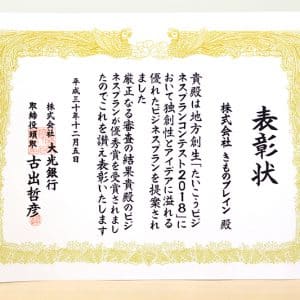 表彰状
株式会社 きものブレイン 殿
貴殿は地方創生「たいこうビジ
ネスプランコンテスト2018」に
おいて独創性とアイデアに溢れる
優れたビジネスプランを提案され
ました
厳正なる審査の結果貴殿のビジ
ネスプランが優秀賞を受賞されまし
たのでこれを讃え表彰いたします
平成三十年十二月五日
株式会社 大光銀行
取締役頭取 古出哲彦